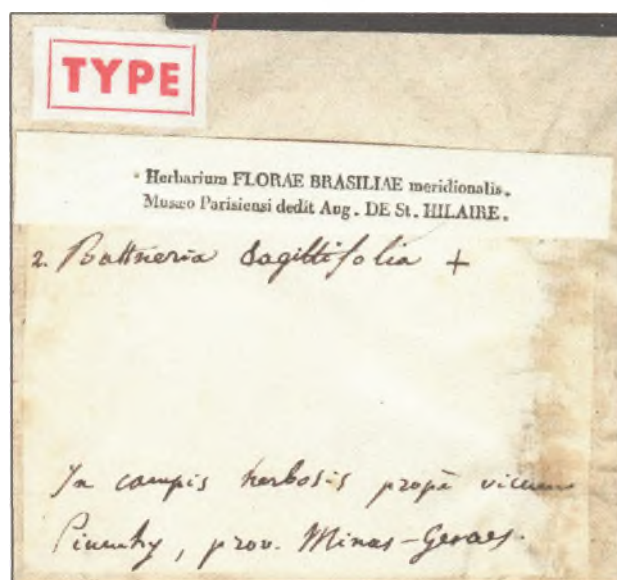 TYPE
· Herbarium FLORAE BRASILIAE meridionalis.
Musæo Parisiensi dedit Aug. DE St. HILAIRE.
2. Buttneria Sagittifolia +
In campis herbosis propè vicum
prov. Minas-Geraes.